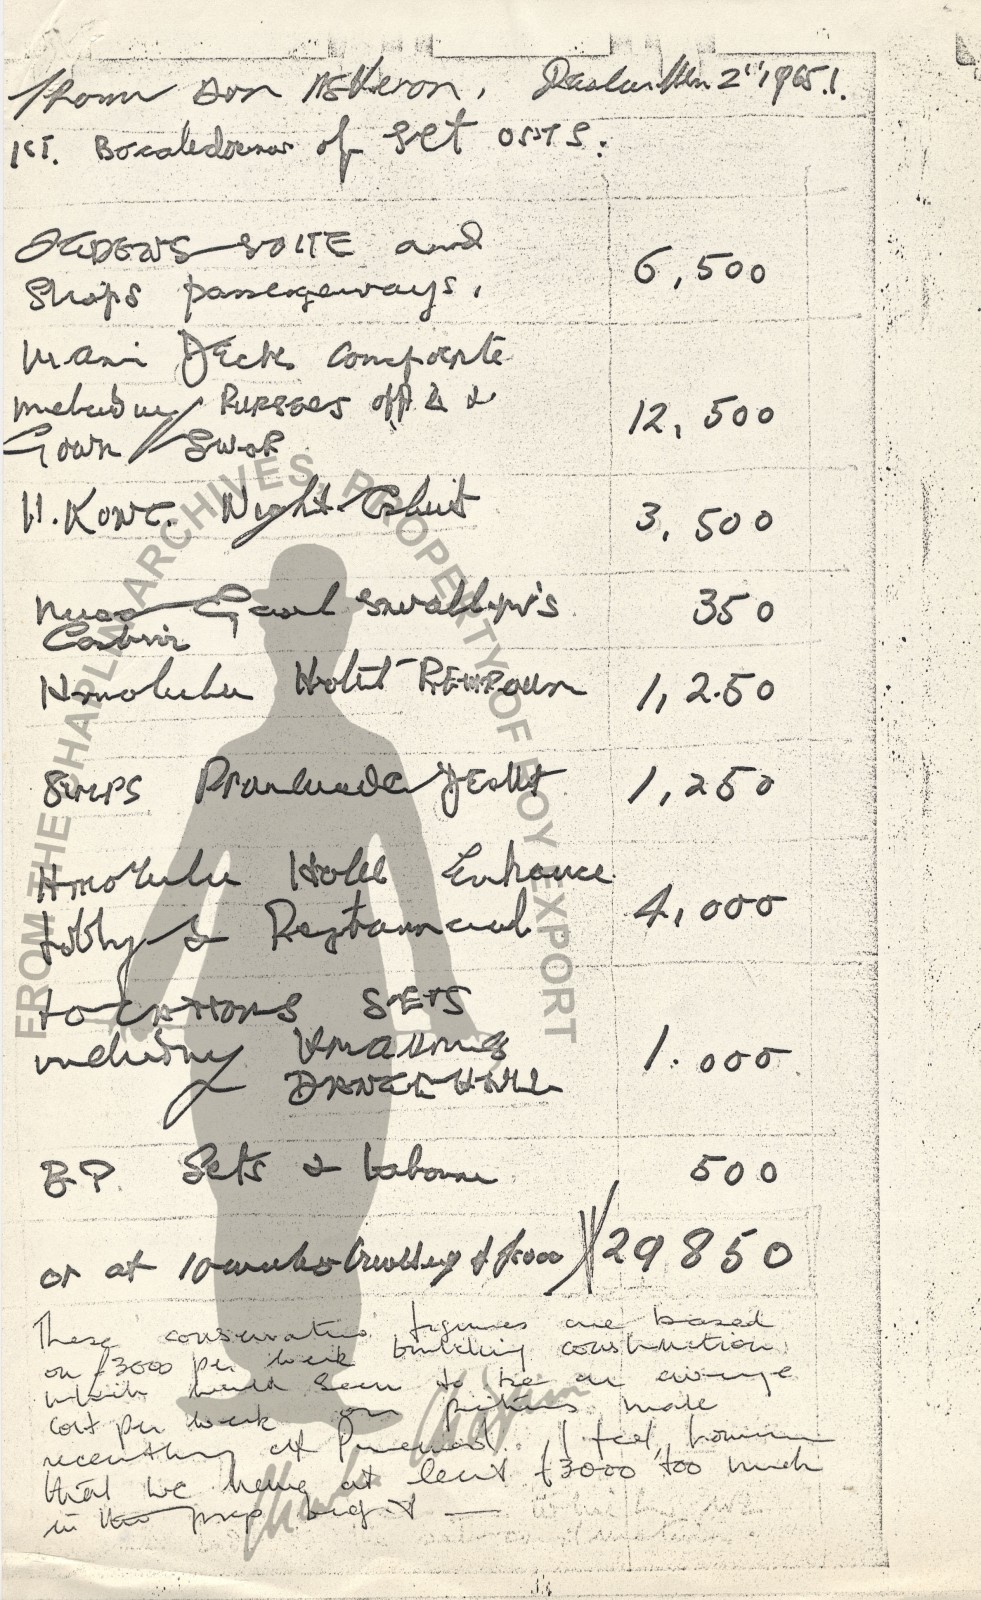 From Don Ashton, December 2nd 1965.
1ST. Breakdown of set costs:
OGDENS SUITE and
Ships passageways. 6,500
Main Deck composite
including Pursers off. &
Gown Shop 12,500
H. KONG. Night Club 3,500
Gaol Swallow's
Cabin 350
Honolulu Hotel Restroom 1,250
SHIPS Promenade Deck 1,250
Honolulu Hotel Entrance
Lobby & Restaurant 4,000
LOCATIONS SETS
including
DANCE HALL 1.000
B.P. Sets & Labour 500
or at 10 weeks building £3,000 29850
These conservative figures are based
on £3000 per week building construction
which would seem to be an average
cost per week for pictures made
recently at Pinewood. I feel, however
that we have at least £3000 too much
in this prep budget —
FROM THE CHAPLIN ARCHIVES PROPERTY OF ROY EXPORT